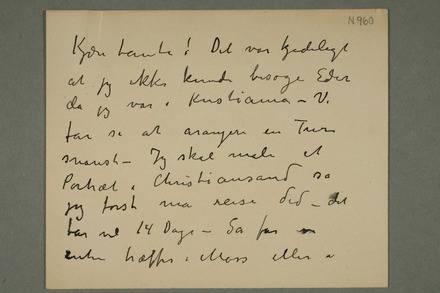 N.960
Kjære tante! Det var kjedeligt
at jeg ikke kunde besøge Eder
da jeg var i Kristiania – Vi
far se at arangere en Tur
snarest – Jeg skal male et
Portræt i Christiansand så
jeg først ma reise did – det
tar vel 14 Dage – Sa far
enten træffes i Moss eller i